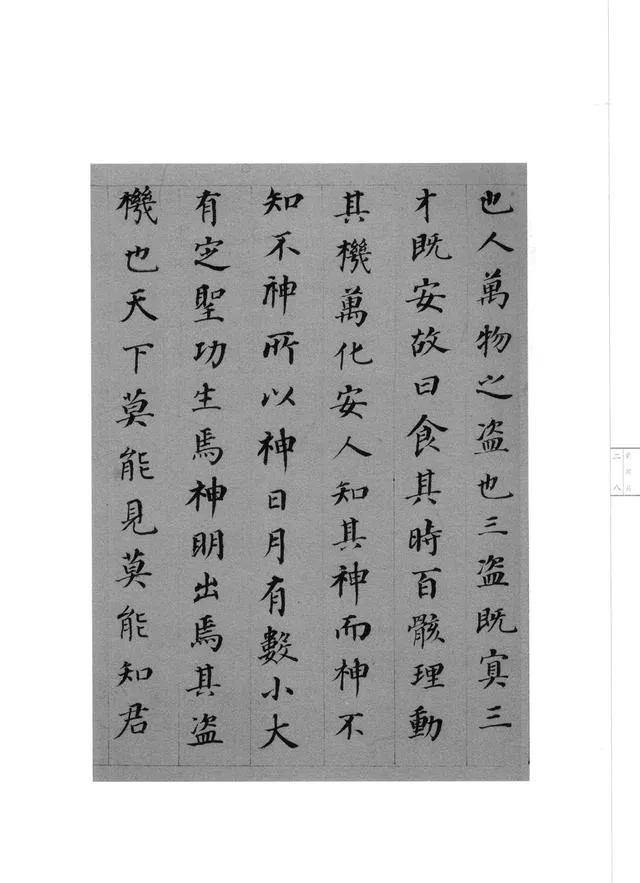 也人萬物之盗也三盗既三
才既安故曰食其時百骸理動
其機萬化安人知其神而神不
知不神所以神日月有數小大
有定聖功生焉神明出焉其盗
機也天下莫能見莫能知君
二八